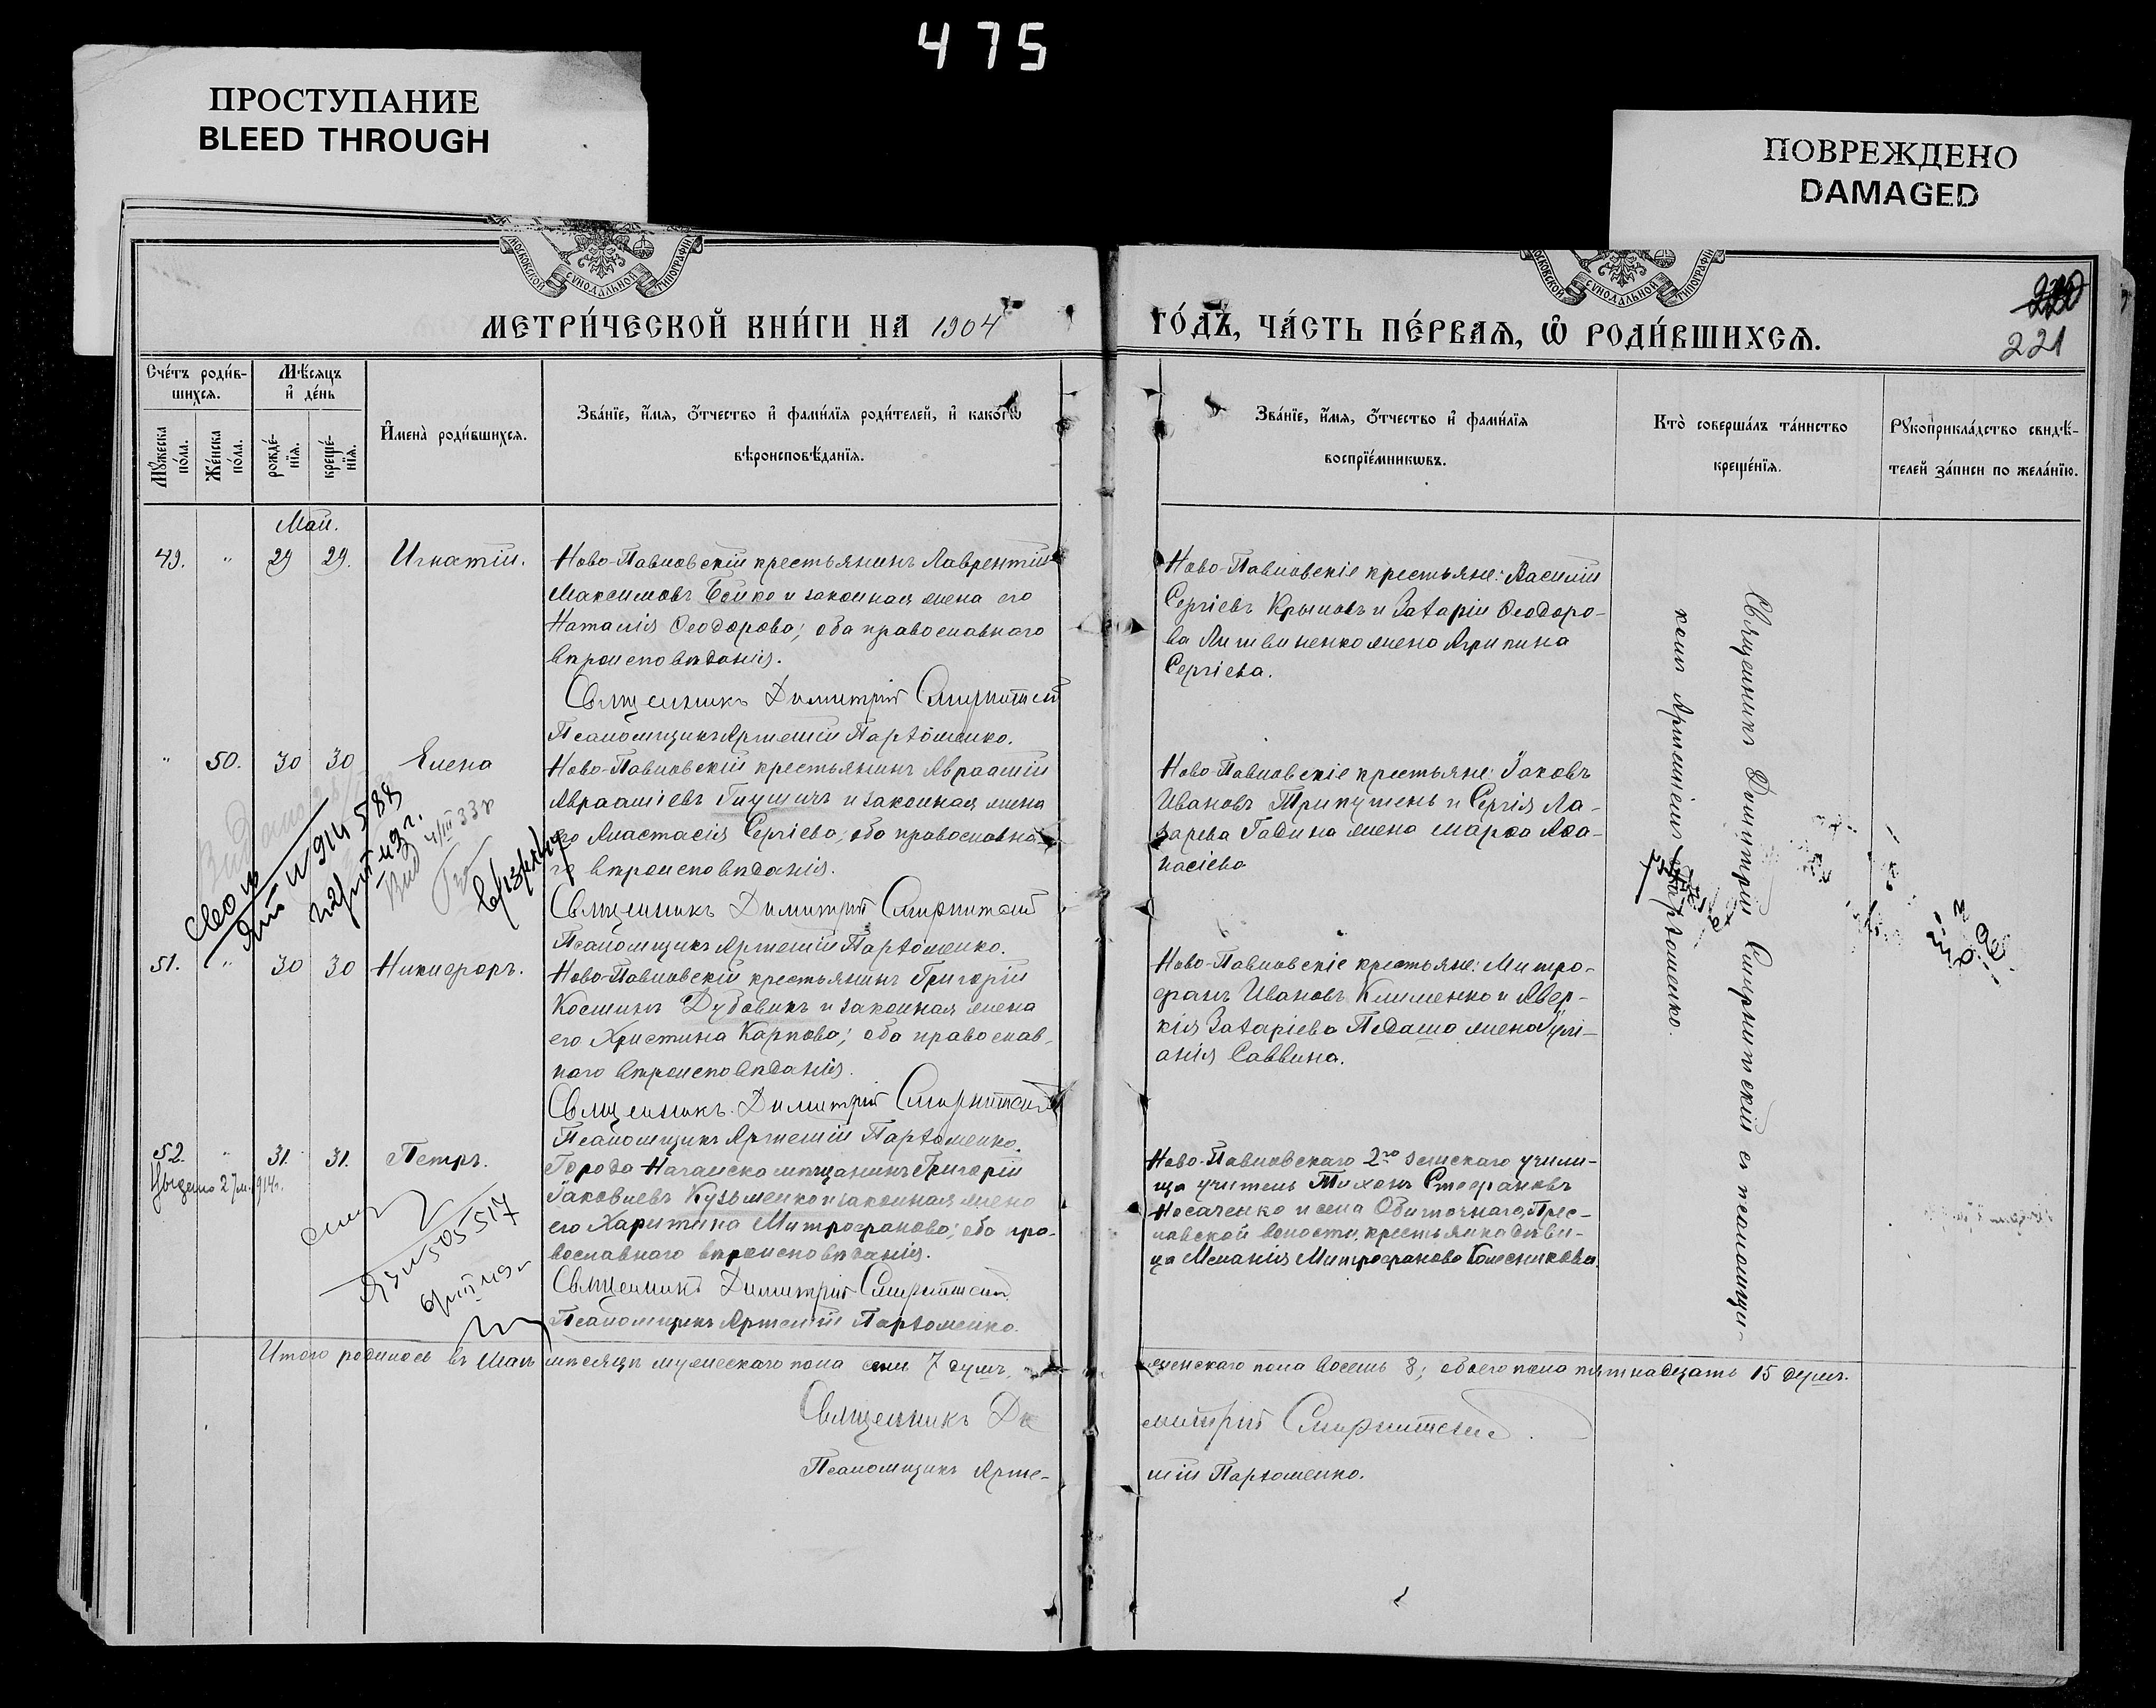 475
ПРОСТУПАНИЕ
BLEED THROUGH
ПОВРЕЖДЕНО
DAMAGED
МОСКОВСКОЙ СУНОДАЛЬНОЙ ТИПОГРАФІИ
МОСКОВСКОЙ СУНОДАЛЬНОЙ ТИПОГРАФІИ
МЕТРИ́ЧЕСКОЙ КНИ́ГИ НА 1904
ГО́ДЪ, ЧА́СТЬ ПЕ́РВАѦ, Ѡ҆ РОДИ́ВШИХСѦ.
220
221
Сче́тъ роди́в-
шихсѧ.
Мѣ́сѧцъ
и҆ де́нь
Мꙋ́жеска
по́ла.
Же́нска
по́ла.
рожде́-
нїѧ.
креще́-
нїѧ.
И҆мена̀ роди́вшихсѧ.
Зва́нїе, и҆́мѧ, ѻ҆́тчество и҆ фами́лїѧ роди́телей, и҆ како́гѡ
вѣроисповѣ́данїѧ.
Зва́нїе, и҆́мѧ, ѻ҆́тчество и҆ фами́лїѧ
воспрїе́мникѡвъ.
Кто̀ соверша́лъ та́инство
креще́нїѧ.
Рꙋкоприкла́дство свидѣ́-
телей за́писи по жела́нїю.
Май.
49. " 29 29. Игнатій.
Ново-Павловскій крестьянинъ Лаврентій
Максимовъ Бойко и законная жена его
Наталія Ѳеодорова; оба православнаго
вѣроисповѣданія.
Священникъ Димитрій Смирнитскій
Псаломщикъ Артемій Пархоменко.
Ново-Павловскіе крестьяне: Василій
Сергіевъ Крымовъ и Захарія Ѳеодоро-
ва Литвиненко жена Агрипина
Сергіева.
" 50. 30 30 Елена
Ново-Павловскій крестьянинъ Авраамій
Авраамiевъ и законная жена
его Анастасія Сергіева; оба православна-
го вѣроисповѣданія.
Священникъ Димитрій Смирнитскій
Псаломщикъ Артемій Пархоменко.
Ново-Павловскіе крестьяне: Іаковъ
Ивановъ Трипутень и Сергія Ла-
зарева Гадина жена Марѳа Аѳа-
насіева
51. " 30 30 Никифоръ.
Ново-Павловскій крестьянинъ Григорій
Косминъ Дубовикъ и законная жена
его Христина Карпова; оба православ-
наго вѣроисповѣданія.
Священникъ Димитрій Смирнитскій
Псаломщикъ Артемій Пархоменко.
Ново-Павловскіе крестьяне: Митро-
фанъ Ивановъ Клименко и Авер-
кія Захаріева Педашо жена Іулі-
анія Саввина.
52. " 31. 31. Петръ.
Города Ногайска мѣщанинъ Григорій
Іаковлевъ Кузьменко и законная жена
его Харитина Митрофанова; оба пра-
вославнаго вѣроисповѣданія.
Священникъ Димитрій Смирнитскій
Псаломщикъ Артемій Пархоменко.
Ново-Павловскаго 2го земскаго учили-
ща учитель Тихонъ Стефановъ
Носаченко и села Обиточнаго, Прес-
лавской волости, крестьянка дѣви-
ца Меланія Митрофанова Колесникова.
505517
Священникъ Димитрій Смирнитскій съ псаломщи-
комъ Артеміемъ Пархоменко.
Итого родилось въ Маѣ мѣсяцѣ мужескаго пола семь 7 душъ,
женскаго пола восемь 8; обоего пола пятнадцать 15 душъ.
Священникъ Ди
митрій Смирнитскій.
Псаломщикъ Арте-
мій Пархоменко.